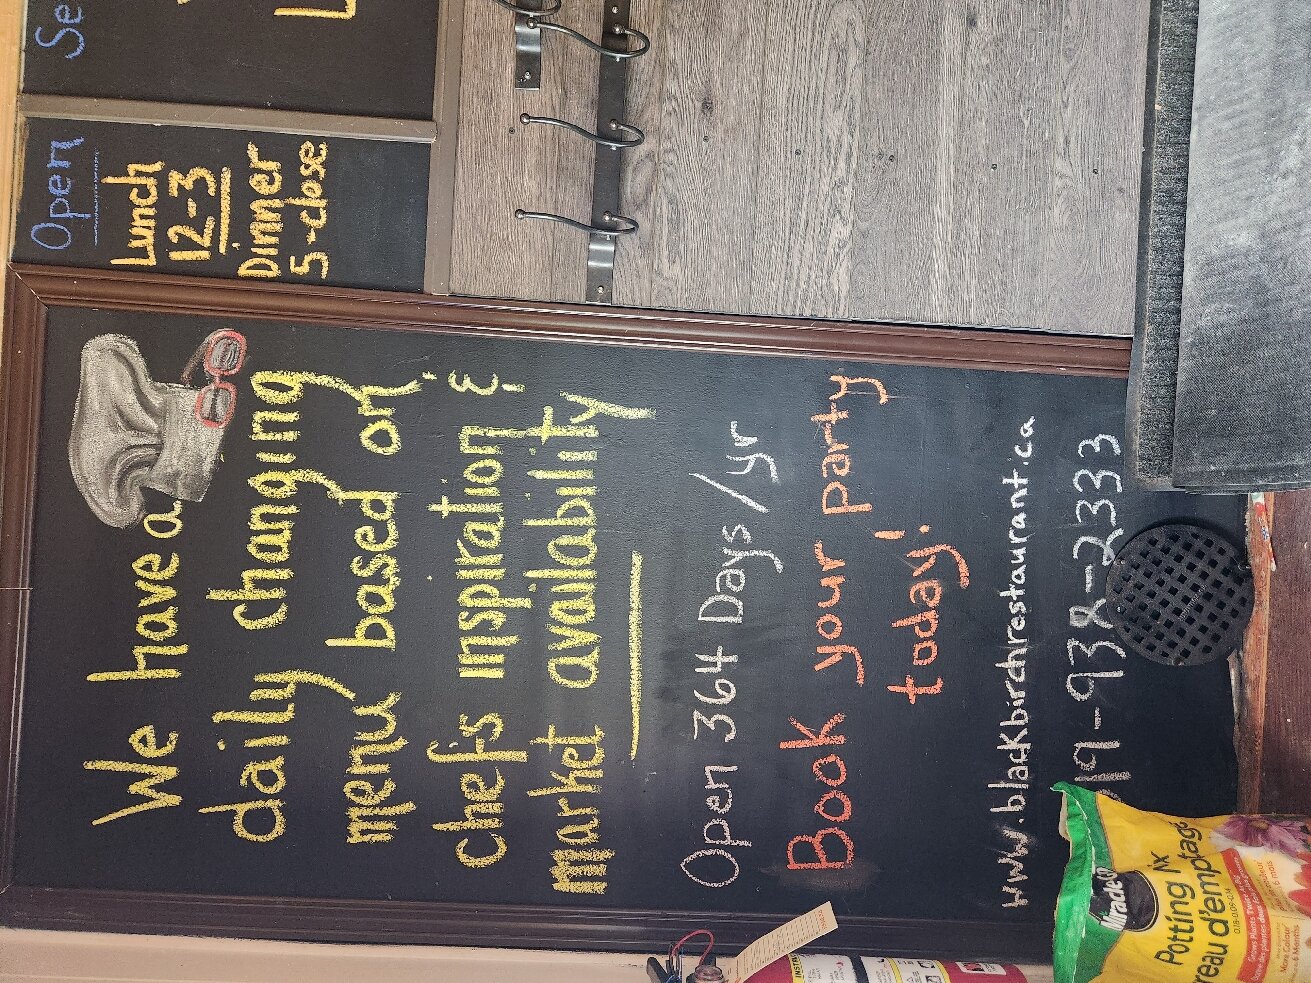 We have a
daily changing
menu based on
chefs inspiration &
market availability
Open 364 Days/yr
Book your party
today!
www.blackbirchrestaurant.ca
19-938-2333
Open
Lunch
12-3
Dinner
5-close
Se
Miracle
Potting Mix
reau d'empotage